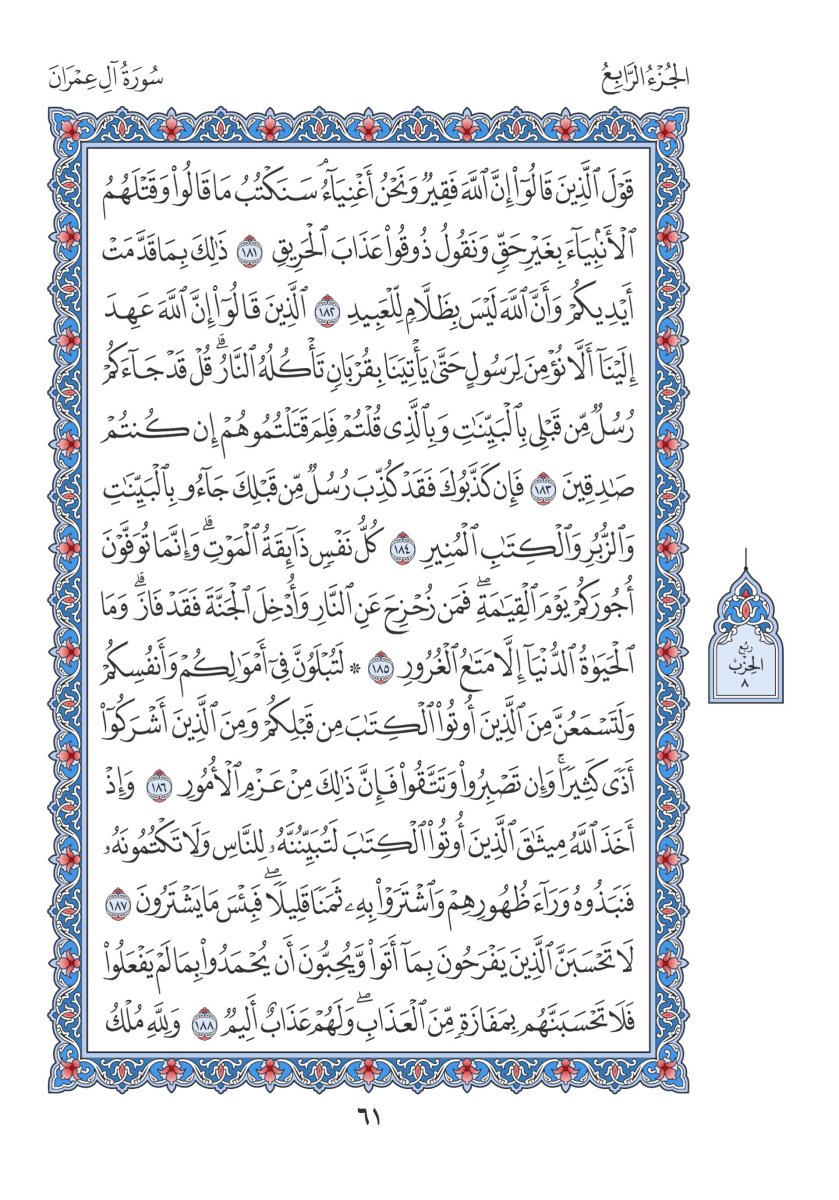 الجُزْءُ الرَّابِعُ
سُورَةُ آلِ عِمْرَانَ
قَوْلَ ٱلَّذِينَ قَالُوٓاْ إِنَّ ٱللَّهَ فَقِيرٞ وَنَحۡنُ أَغۡنِيَآءُۘ سَنَكۡتُبُ مَا قَالُواْ وَقَتۡلَهُمُ
ٱلۡأَنۢبِيَآءَ بِغَيۡرِ حَقّٖ وَنَقُولُ ذُوقُواْ عَذَابَ ٱلۡحَرِيقِ ١٨١ ذَٰلِكَ بِمَا قَدَّمَتۡ
أَيۡدِيكُمۡ وَأَنَّ ٱللَّهَ لَيۡسَ بِظَلَّامٖ لِّلۡعَبِيدِ ١٨٢ ٱلَّذِينَ قَالُوٓاْ إِنَّ ٱللَّهَ عَهِدَ
إِلَيۡنَآ أَلَّا نُؤۡمِنَ لِرَسُولٍ حَتَّىٰ يَأۡتِيَنَا بِقُرۡبَانٖ تَأۡكُلُهُ ٱلنَّارُۗ قُلۡ قَدۡ جَآءَكُمۡ
رُسُلٞ مِّن قَبۡلِي بِٱلۡبَيِّنَٰتِ وَبِٱلَّذِي قُلۡتُمۡ فَلِمَ قَتَلۡتُمُوهُمۡ إِن كُنتُمۡ
صَٰدِقِينَ ١٨٣ فَإِن كَذَّبُوكَ فَقَدۡ كُذِّبَ رُسُلٞ مِّن قَبۡلِكَ جَآءُو بِٱلۡبَيِّنَٰتِ
وَٱلزُّبُرِ وَٱلۡكِتَٰبِ ٱلۡمُنِيرِ ١٨٤ كُلُّ نَفۡسٖ ذَآئِقَةُ ٱلۡمَوۡتِۗ وَإِنَّمَا تُوَفَّوۡنَ
أُجُورَكُمۡ يَوۡمَ ٱلۡقِيَٰمَةِۖ فَمَن زُحۡزِحَ عَنِ ٱلنَّارِ وَأُدۡخِلَ ٱلۡجَنَّةَ فَقَدۡ فَازَۗ وَمَا
ٱلۡحَيَوٰةُ ٱلدُّنۡيَآ إِلَّا مَتَٰعُ ٱلۡغُرُورِ ١٨٥ ۞ لَتُبۡلَوُنَّ فِيٓ أَمۡوَٰلِكُمۡ وَأَنفُسِكُمۡ
وَلَتَسۡمَعُنَّ مِنَ ٱلَّذِينَ أُوتُواْ ٱلۡكِتَٰبَ مِن قَبۡلِكُمۡ وَمِنَ ٱلَّذِينَ أَشۡرَكُوٓاْ
أَذٗى كَثِيرٗاۚ وَإِن تَصۡبِرُواْ وَتَتَّقُواْ فَإِنَّ ذَٰلِكَ مِنۡ عَزۡمِ ٱلۡأُمُورِ ١٨٦ وَإِذۡ
أَخَذَ ٱللَّهُ مِيثَٰقَ ٱلَّذِينَ أُوتُواْ ٱلۡكِتَٰبَ لَتُبَيِّنُنَّهُۥ لِلنَّاسِ وَلَا تَكۡتُمُونَهُۥ
فَنَبَذُوهُ وَرَآءَ ظُهُورِهِمۡ وَٱشۡتَرَوۡاْ بِهِۦ ثَمَنٗا قَلِيلٗاۖ فَبِئۡسَ مَا يَشۡتَرُونَ ١٨٧
لَا تَحۡسَبَنَّ ٱلَّذِينَ يَفۡرَحُونَ بِمَآ أَتَواْ وَّيُحِبُّونَ أَن يُحۡمَدُواْ بِمَا لَمۡ يَفۡعَلُواْ
فَلَا تَحۡسَبَنَّهُم بِمَفَازَةٖ مِّنَ ٱلۡعَذَابِۖ وَلَهُمۡ عَذَابٌ أَلِيمٞ ١٨٨ وَلِلَّهِ مُلۡكُ
رُبُع
الحِزْب
٨
٦١